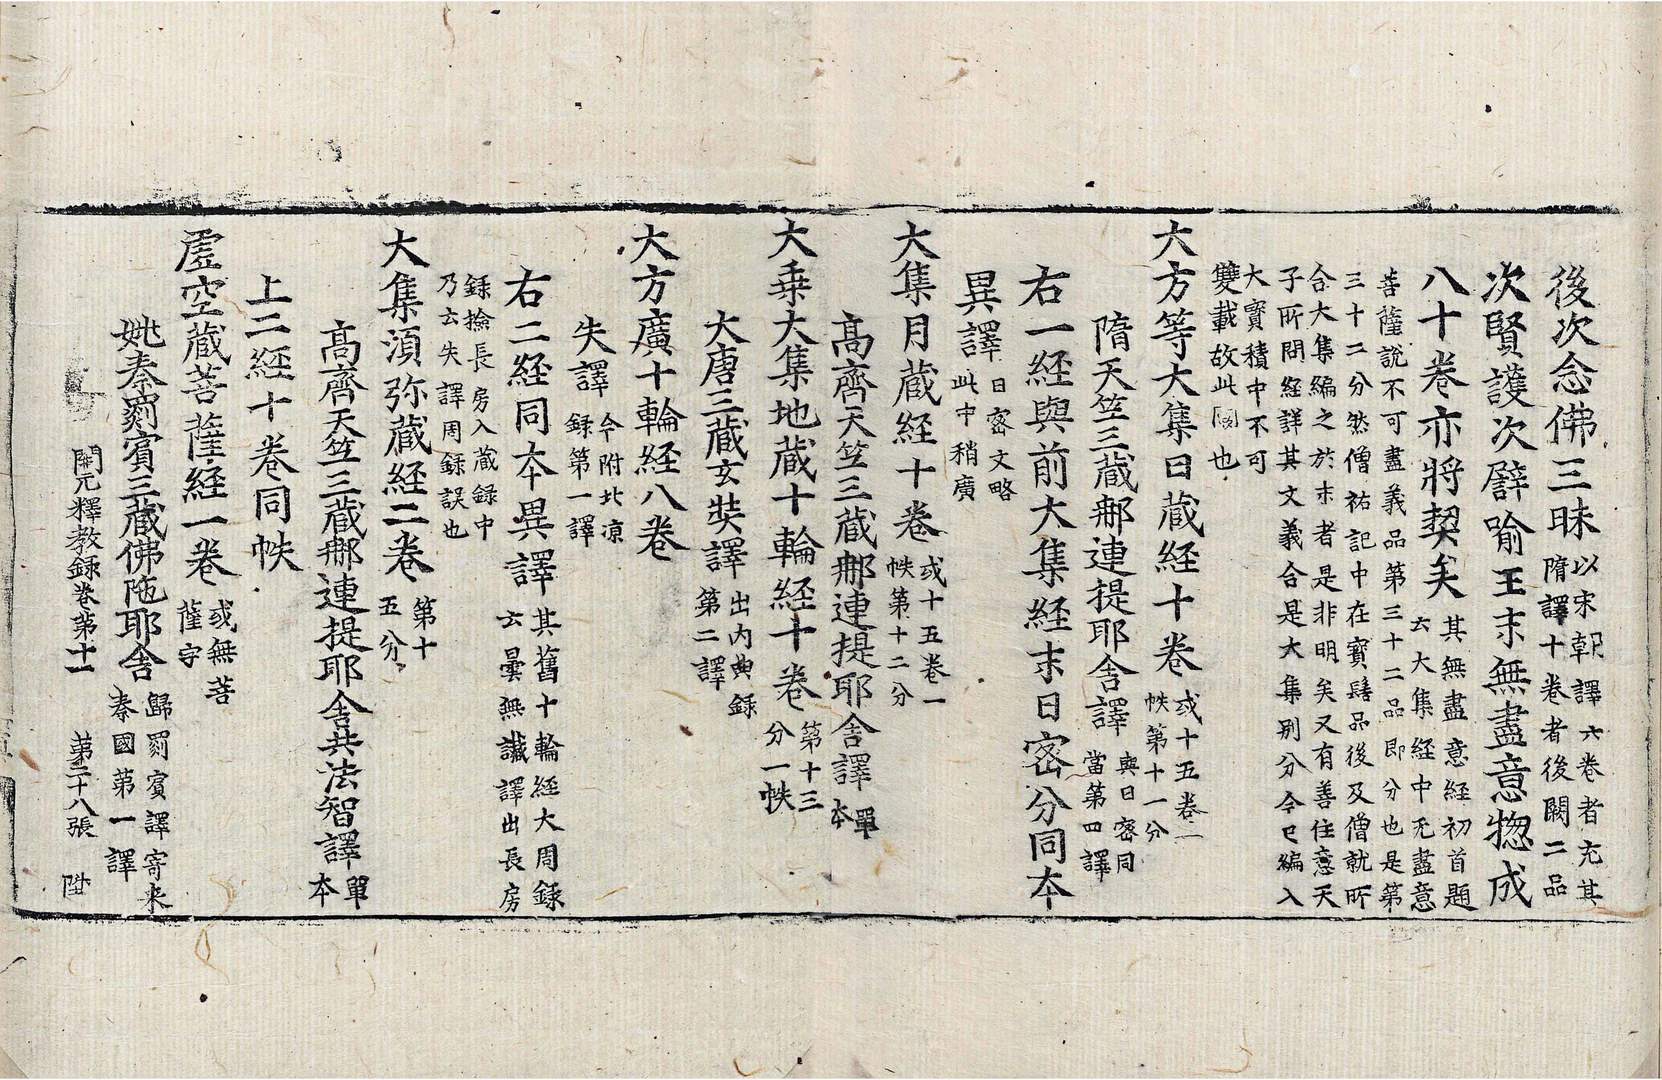 後次念佛三昧以宋朝譯六卷者充其
隋譯十卷者後闕二品
次賢護次譬喻王末無盡意惣成
八十卷亦將契矣其無盡意經初首題
云大集經中无盡意
菩薩說不可盡義品第三十二品即分也是第
三十二分然僧祐記中在寶髻品後及僧就所
合大集編之於末者是非明矣又有善住意天
子所問經詳其文義合是大集別分今已編入
大寶積中不可
雙載故此闕也
大方等大集日藏經十卷或十五卷二
帙第十一分
隋天竺三藏那連提耶舎譯與日密同
當第四譯
右一経與前大集経末日密分同本
異譯日密文略
此中稍廣
大集月蔵経十卷或十五卷一
帙第十二分
高齊天竺三蔵那連提耶舎譯單
本
大乗大集地蔵十輪経十卷第十三
分一帙
大唐三蔵玄奘譯出内典録
第二譯
大方廣十輪経八卷
失譯今附北涼
録第一譯
右二経同本異譯其舊十輪經大周録
云曇無讖譯出長房
録撿長房入蔵録中
乃云失譯周録誤也
大集湏弥蔵経二卷第十
五分
高齊天竺三蔵那連提耶舎共法智譯單
本
上二経十卷同帙
虗空蔵菩薩経一卷或無菩
薩字
姚秦罽賓三蔵佛陁耶舎歸罽賓譯寄来
秦國第一譯
開元釋教録卷第十一 第二十八張 陞